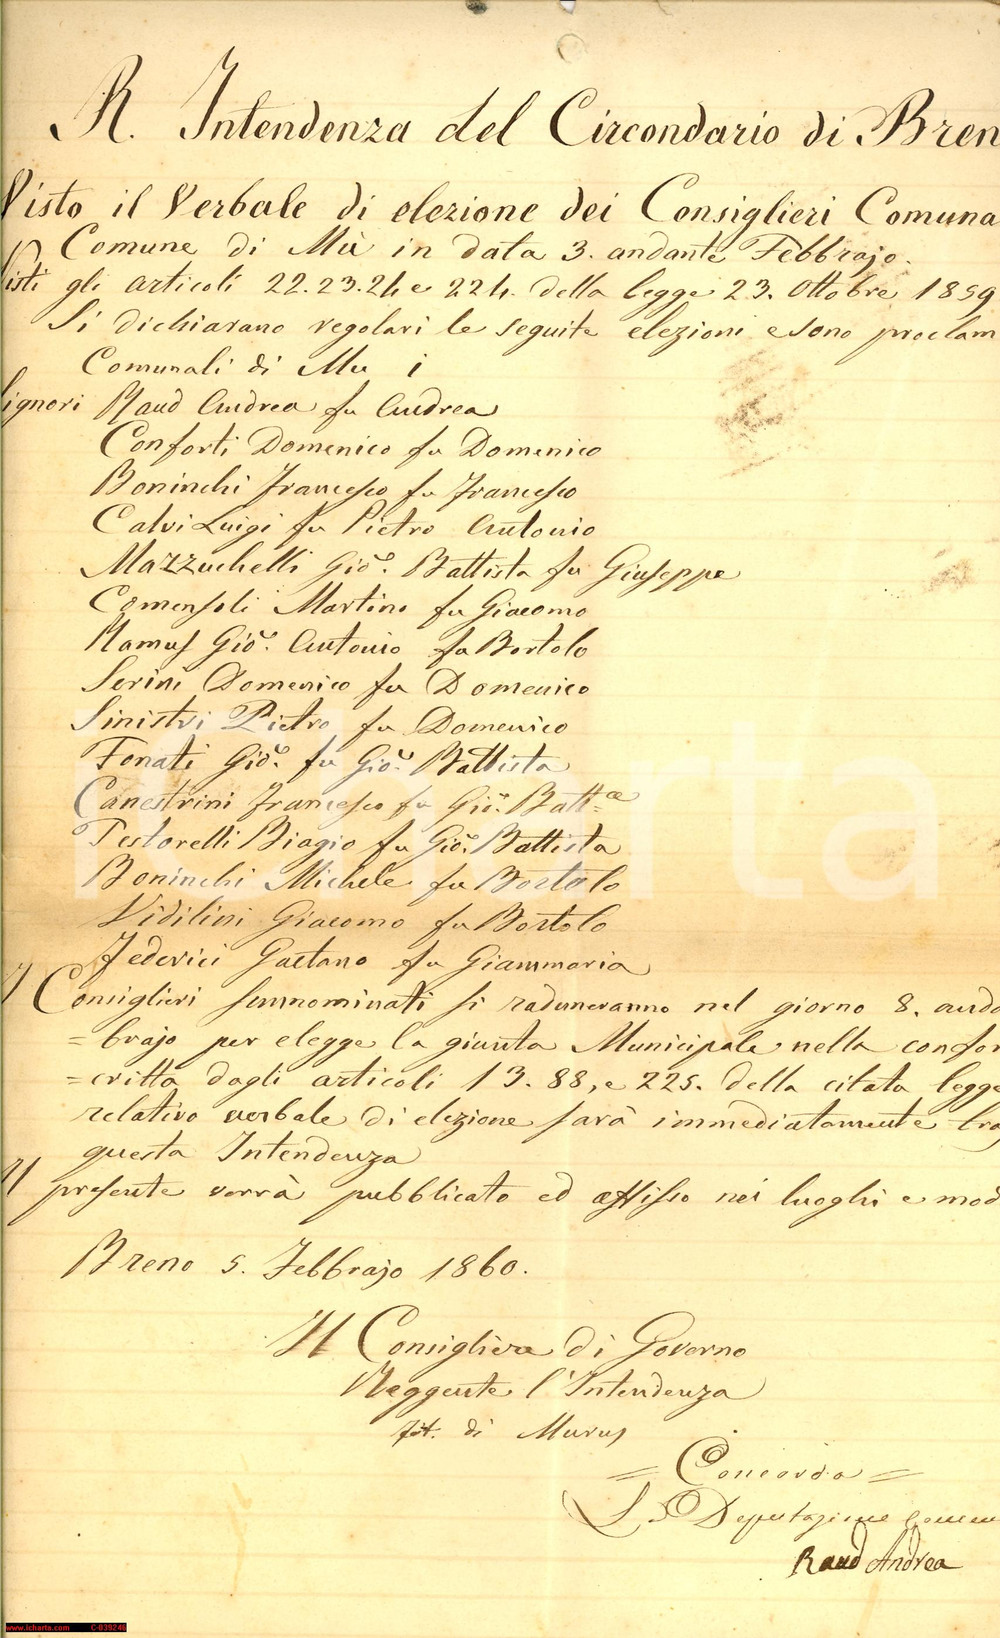 R. Intendenza del Circondario di Bren
Visto il Verbale di elezione dei Consiglieri Comuna
Comune di Mù in data 3. andante Febbrajo.
Visti gli articoli 22.23.24 e 224. della legge 23. Ottobre 1859
Si dichiarano regolari le seguite elezioni e sono proclam
Comunali di Mu i
Signori Raud Andrea fu Andrea
Conforti Domenico fu Domenico
Boninchi Francesco fu Francesco
Calvi Luigi fu Pietro Antonio
Mazzuchelli Gio. Battista fu Giuseppe
Comensoli Martino fu Giacomo
Ramus Gio. Antonio fu Bortolo
Serini Domenico fu Domenico
Sinistri Pietro fu Domenico
Fonati Gio. fu Gio. Battista
Canestrini Francesco fu Gio. Batt.a
Testorelli Biagio fu Gio. Battista
Boninchi Michele fu Bortolo
Vidilini Giacomo fu Bortolo
Federici Gaetano fu Giammaria
I Consiglieri sunnominati si raduneranno nel giorno 8. anda
=brajo per elegge la giunta Municipale nella confor
=critta dagli articoli 13. 88, e 225. della citata legge
relativo verbale di elezione sarà immediatamente tra
questa Intendenza
Il presente verrà pubblicato ed affisso nei luoghi e mod
Breno 5. Febbrajo 1860.
Il Consigliere di Governo
Reggente l'Intendenza
fir. di Murus
= Concorda =
La Deputazione Comun
Raud Andrea
icharta
www.icharta.com C-039246